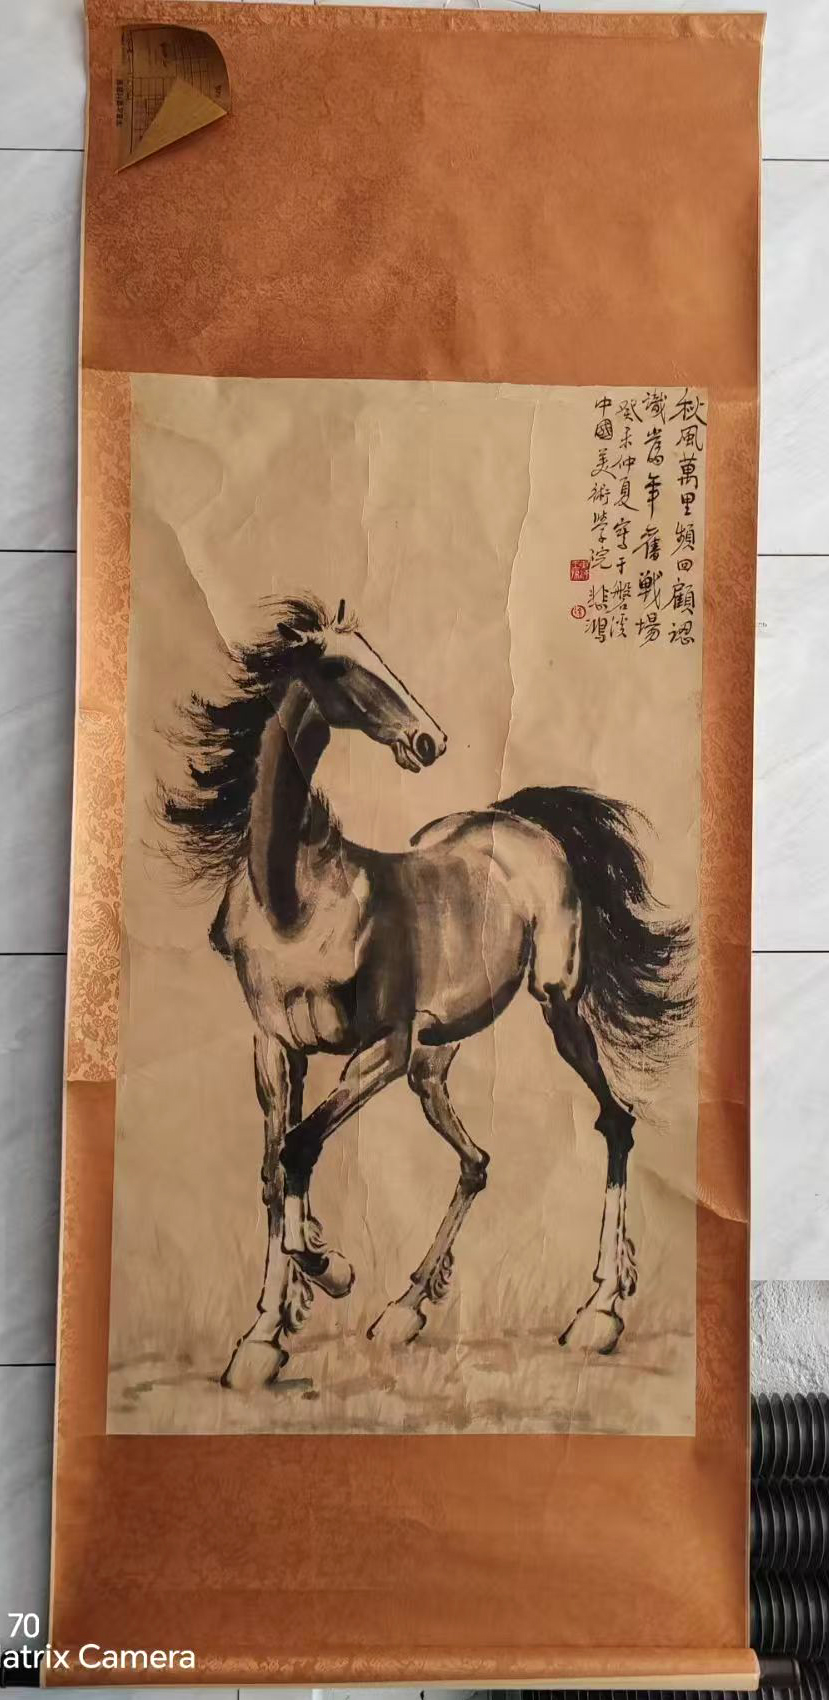 秋風萬里頻回顧認
識當年舊戰場
癸未仲夏寫于磐溪
中國美術學院 悲鴻
70
atrix Camera